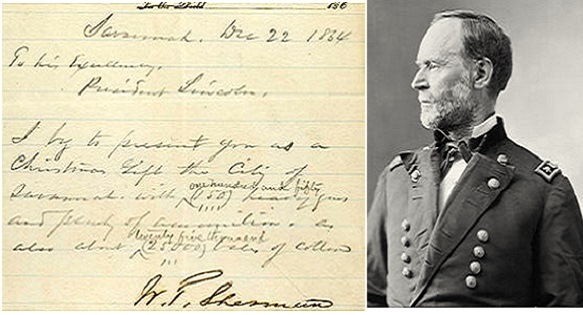 Savannah. Dec 22 1864
To His Excellency,
President Lincoln.
I beg to present you as a
Christmas Gift the City of
one hundred and fifty
Savannah. with (150) heavy guns
and plenty of ammunition. &
twenty five thousand
also about (25.000) bales of cotton
W. T. Sherman